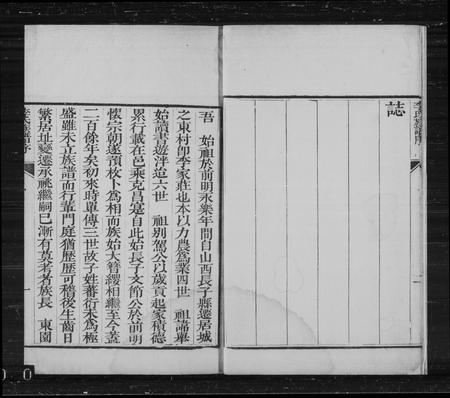 誌
吾　始祖於前明永樂年間自山西長子縣遷居城
之東村卽李家莊也本以力農爲業四世　祖諱舉
始讀書遊泮迨六世　祖别駕公以歲貢起家積德
累行載在邑乘克昌是自此始長子文節公於前明
懷宗朝遂預枚卜爲相而族始大簪纓相繼至今蓋
二百餘年矣初來時單傳三世故子姓蕃衍未爲極
盛雖未立族譜而行輩門庭猶歷歷可稽後生齒日
繁居址變遷承祧繼嗣已漸有莫考者族長　東園
李氏族譜序
一